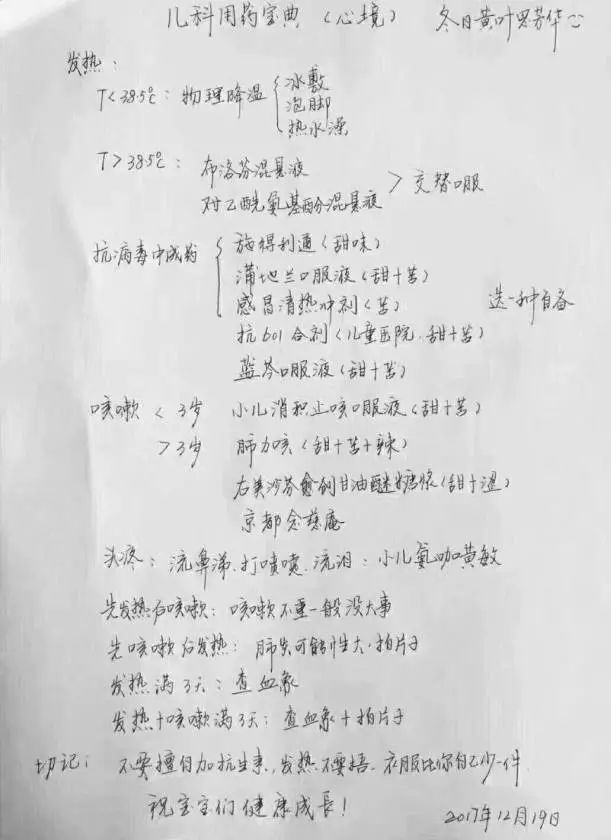 儿科用药宝典（心境） 冬日黄叶思芳华
发热：
T<38.5℃：物理降温{冰敷
泡脚
热水澡
T>38.5℃：布洛芬混悬液
对乙酰氨基酚混悬液 > 交替口服
抗病毒中成药{施得利通（甜味）
蒲地兰口服液（甜+苦）
感冒清热冲剂（苦） 选一种自备
抗601合剂（儿童医院.甜+苦）
蓝芩口服液（甜+苦）
咳嗽 <3岁 小儿消积止咳口服液（甜+苦）
>3岁 肺力咳（甜+苦+辣）
右美沙芬愈创甘油醚糖浆（甜+涩）
京都念慈庵
头疼：流鼻涕.打喷嚏.流泪：小儿氨咖黄敏
先发热后咳嗽：咳嗽不重一般没大事
先咳嗽后发热：肺炎可能性大.拍片子
发热满3天：查血象
发热+咳嗽满3天：查血象+拍片子
切记：不要擅自加抗生素，发热不要捂.衣服比你自己少一件
祝宝宝们健康成長！
2017年12月19日